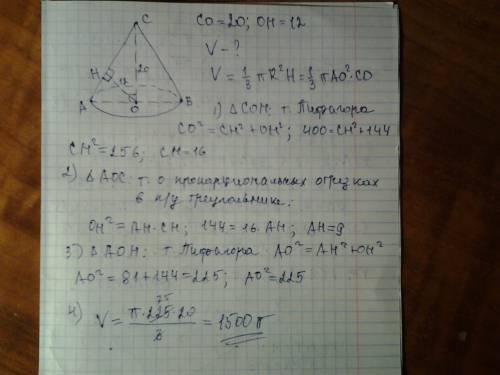 C
CO = 20; OH = 12
V - ?
V = 1/3 πR²H = 1/3 πAO²·CO
H
20
12
A
O
B
1) ΔCOH: т. Пифагора
CO² = CH² + OH²; 400 = CH² + 144
CH² = 256; CH = 16
2) ΔAOC: т. о пропорциональных отрезках
в п/у треугольнике.
OH² = AH·CH; 144 = 16·AH; AH = 9
3) ΔAOH: т. Пифагора AO² = AH² + OH²
AO² = 81 + 144 = 225; AO² = 225
4) V = π·225·20/3 = 1500π
75